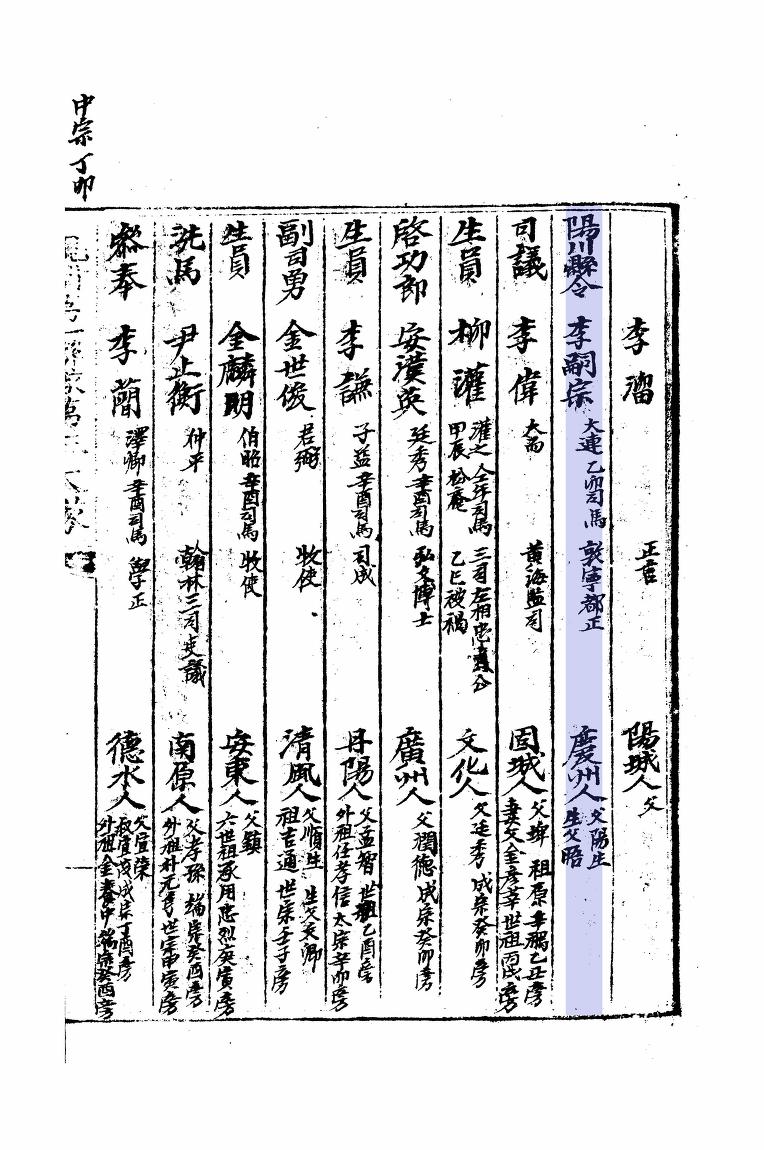 中宗丁卯
李澑 正言 陽城人 父
陽川縣令 李嗣宗 大連 乙卯司馬 敦寧都正 慶州人 父陽生 生父暿
司議 李偉 大而 黃海監司 固城人 父塀 祖原 妻父金彦辛 世祖丙戌房
生員 柳灌 灌之 松庵 甲辰 三司左相忠肅公 乙巳被禍 文化人 父廷秀 成宗癸卯房
啓功郎 安漢英 廷秀 辛酉司馬 弘文博士 廣州人 父潤德 成宗癸卯房
生員 李謙 子益 辛酉司馬 司成 丹陽人 父孟智 世祖乙酉房 外祖任孝信 太宗辛卯房
副司勇 金世俊 君弼 牧使 清風人 父順生 生父友卿 祖吉通 世宗壬子房
生員 金麟明 伯昭 辛酉司馬 牧使 安東人 父鎮 六世祖承用 忠烈庚寅房
洗馬 尹止衡 仲平 翰林三司史議 南原人 父孝孫 端宗癸酉房 外祖朴元亨 世宗甲寅房
參奉 李蕑 澤卿 辛酉司馬 學正 德水人 父宜榮 叔宜茂 成宗丁酉房 外祖金養中 端宗癸酉房